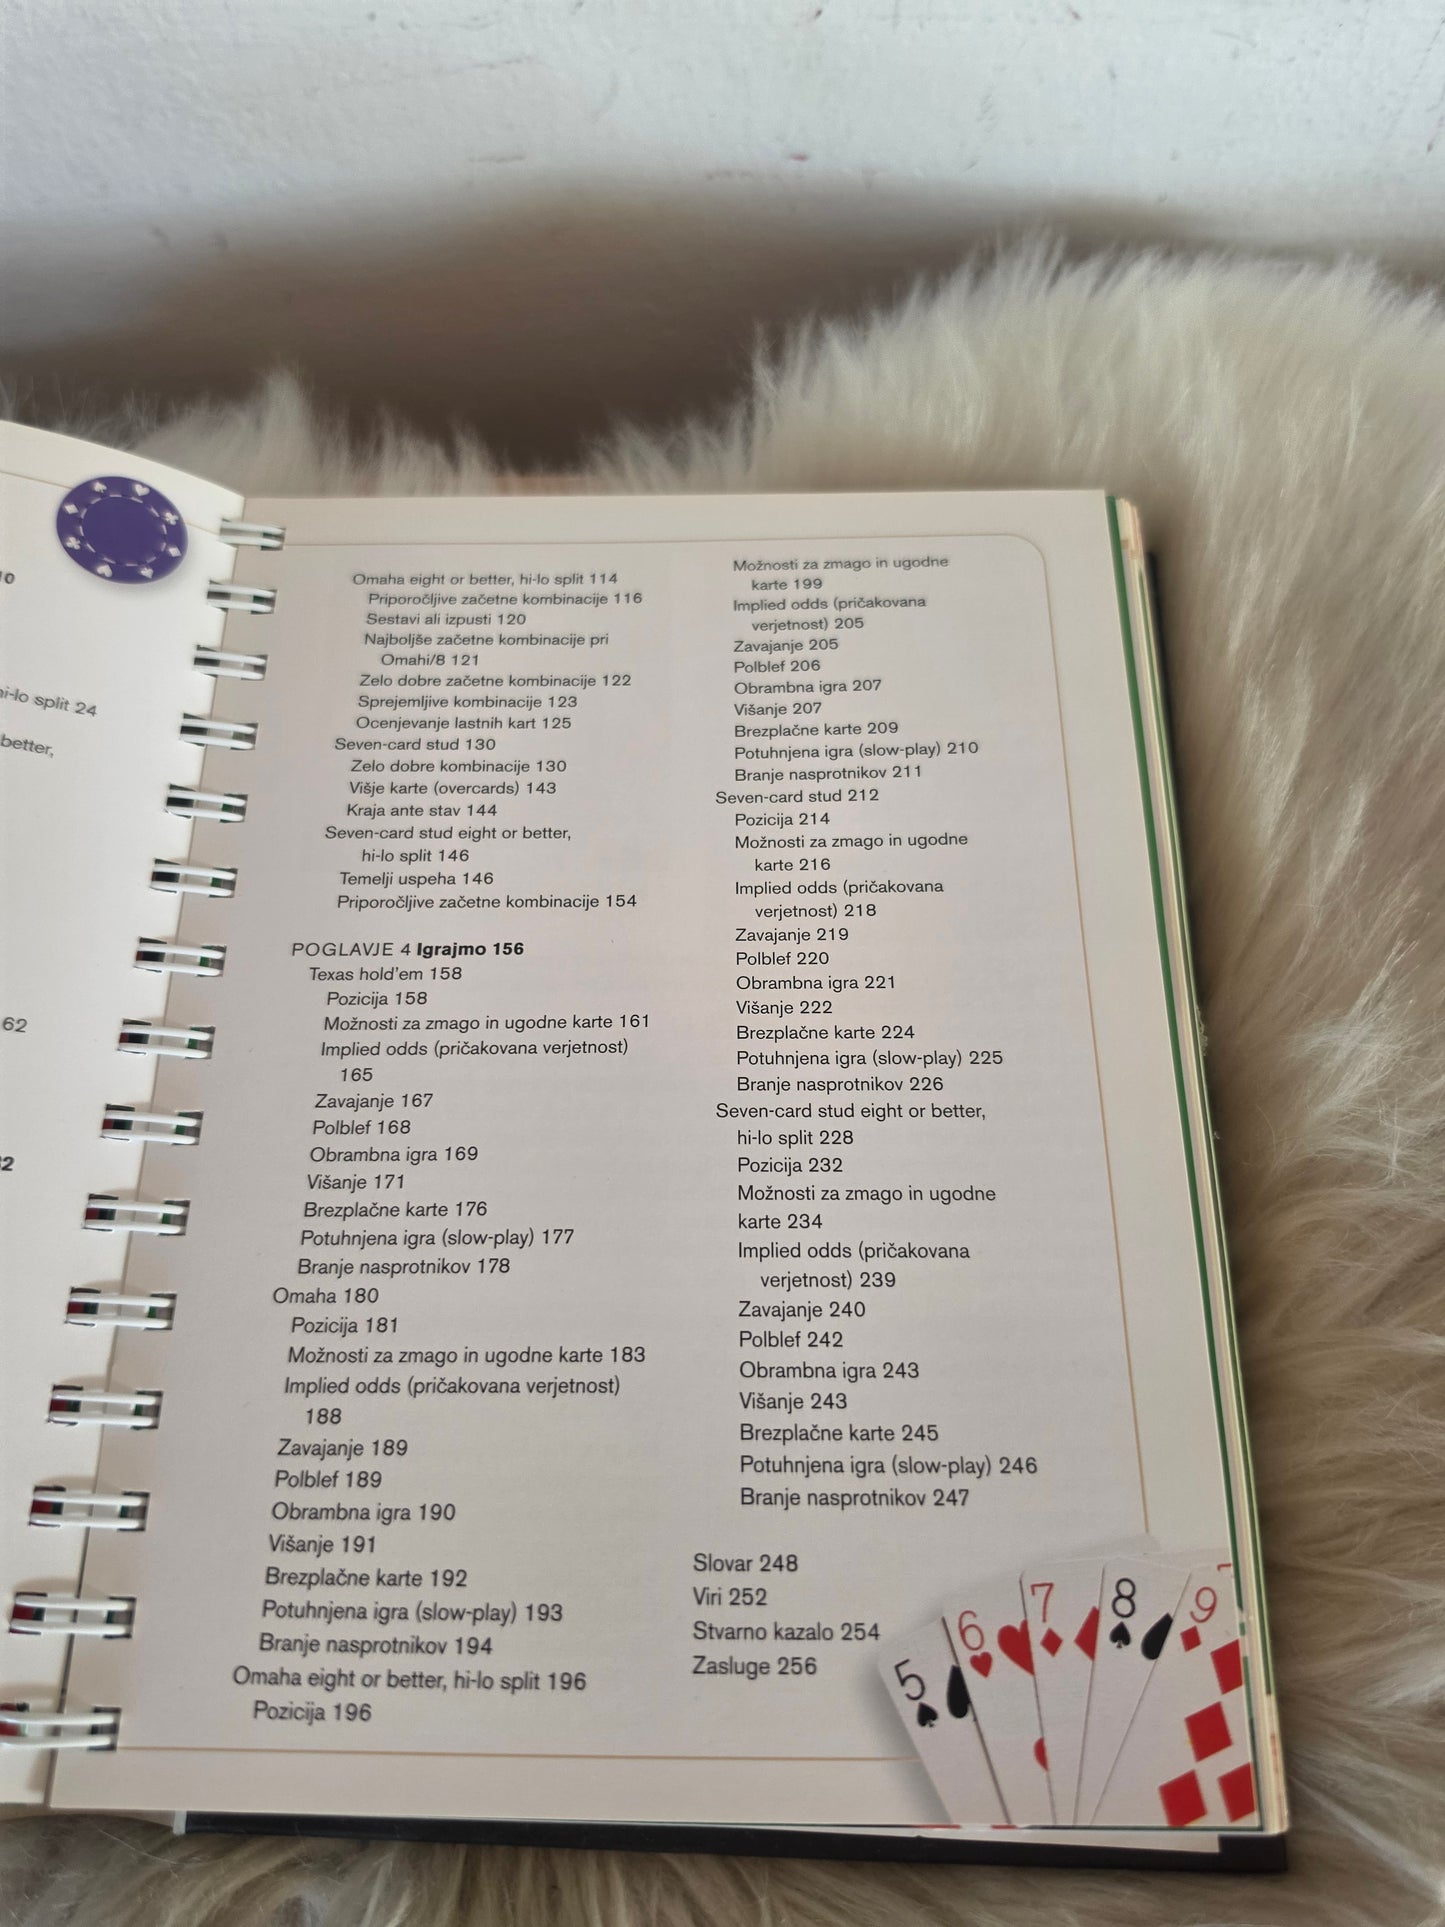 10
hi-lo split 24
better,
62
32
Omaha eight or better, hi-lo split 114
Priporočljive začetne kombinacije 116
Sestavi ali izpusti 120
Najboljše začetne kombinacije pri
Omahi/8 121
Zelo dobre začetne kombinacije 122
Sprejemljive kombinacije 123
Ocenjevanje lastnih kart 125
Seven-card stud 130
Zelo dobre kombinacije 130
Višje karte (overcards) 143
Kraja ante stav 144
Seven-card stud eight or better,
hi-lo split 146
Temelji uspeha 146
Priporočljive začetne kombinacije 154
POGLAVJE 4 Igrajmo 156
Texas hold'em 158
Pozicija 158
Možnosti za zmago in ugodne karte 161
Implied odds (pričakovana verjetnost)
165
Zavajanje 167
Polblef 168
Obrambna igra 169
Višanje 171
Brezplačne karte 176
Potuhnjena igra (slow-play) 177
Branje nasprotnikov 178
Omaha 180
Pozicija 181
Možnosti za zmago in ugodne karte 183
Implied odds (pričakovana verjetnost)
188
Zavajanje 189
Polblef 189
Obrambna igra 190
Višanje 191
Brezplačne karte 192
Potuhnjena igra (slow-play) 193
Branje nasprotnikov 194
Omaha eight or better, hi-lo split 196
Pozicija 196
Možnosti za zmago in ugodne
karte 199
Implied odds (pričakovana
verjetnost) 205
Zavajanje 205
Polblef 206
Obrambna igra 207
Višanje 207
Brezplačne karte 209
Potuhnjena igra (slow-play) 210
Branje nasprotnikov 211
Seven-card stud 212
Pozicija 214
Možnosti za zmago in ugodne
karte 216
Implied odds (pričakovana
verjetnost) 218
Zavajanje 219
Polblef 220
Obrambna igra 221
Višanje 222
Brezplačne karte 224
Potuhnjena igra (slow-play) 225
Branje nasprotnikov 226
Seven-card stud eight or better,
hi-lo split 228
Pozicija 232
Možnosti za zmago in ugodne
karte 234
Implied odds (pričakovana
verjetnost) 239
Zavajanje 240
Polblef 242
Obrambna igra 243
Višanje 243
Brezplačne karte 245
Potuhnjena igra (slow-play) 246
Branje nasprotnikov 247
Slovar 248
Viri 252
Stvarno kazalo 254
Zasluge 256
5 6 7 8 9